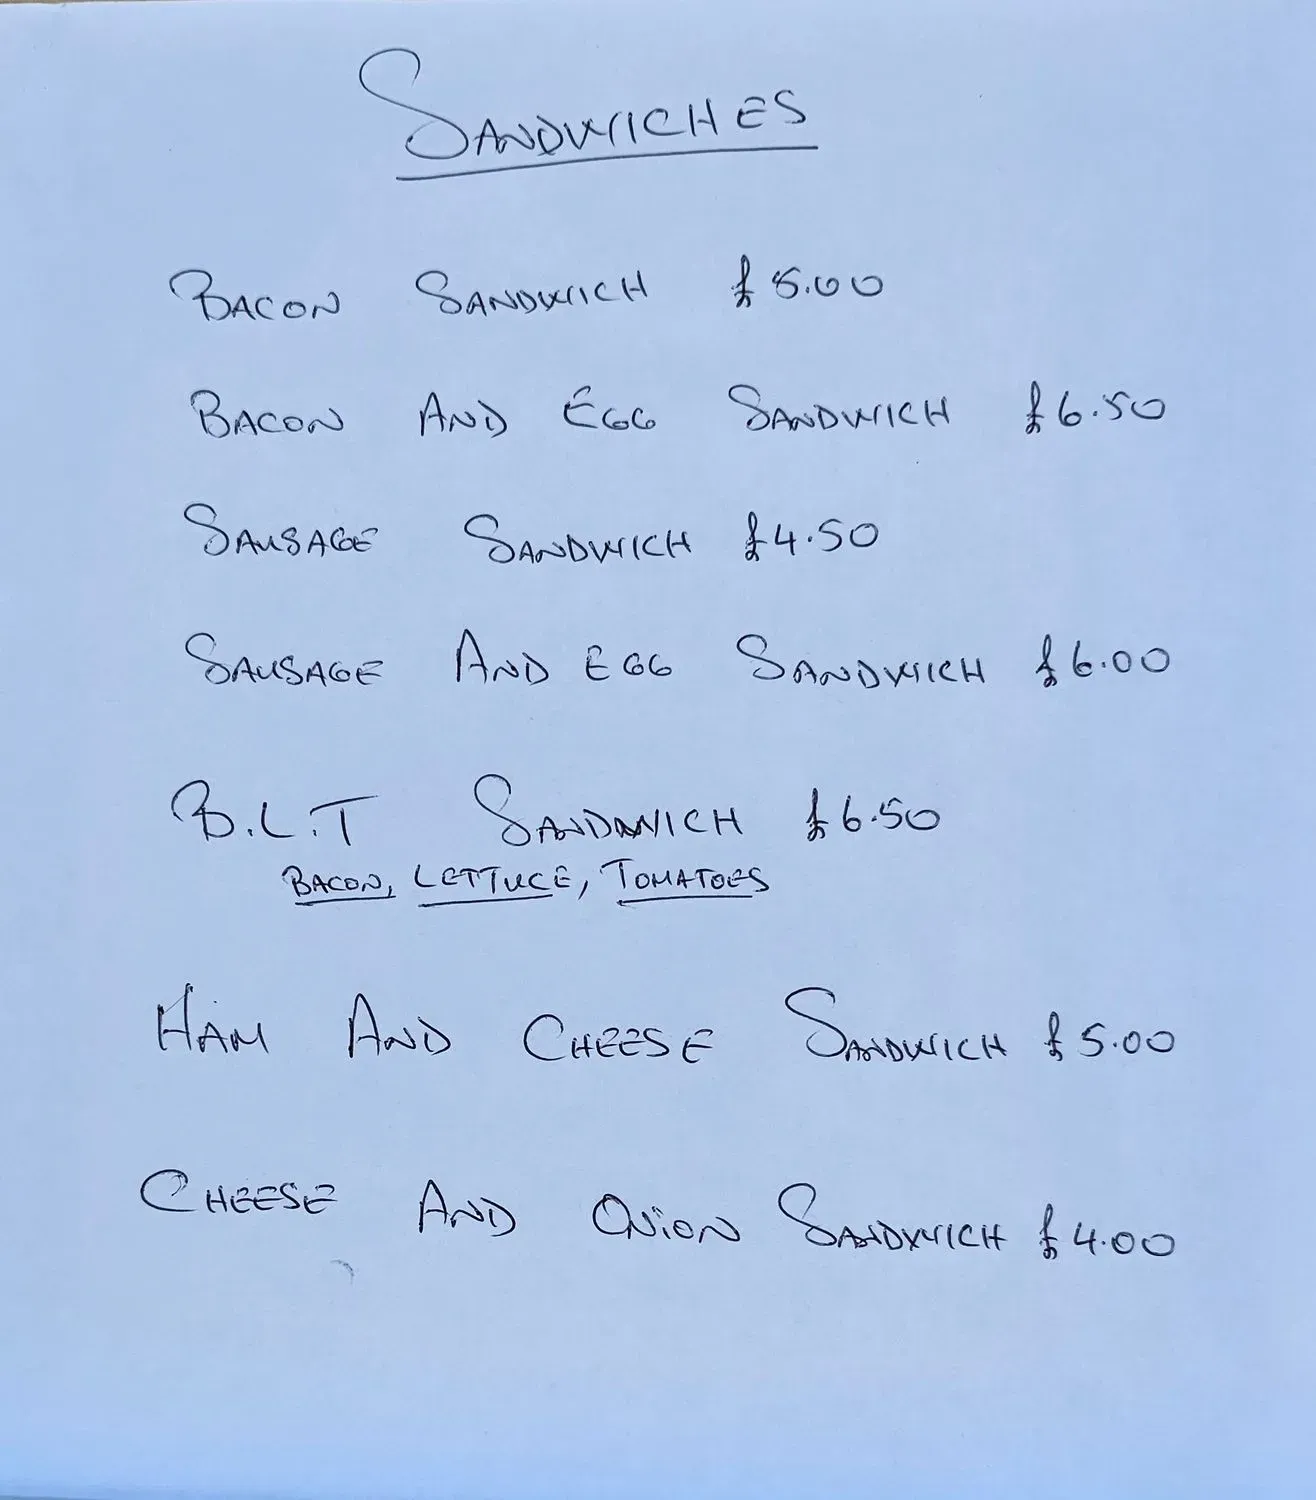 SANDWICHES
BACON SANDWICH £5.00
BACON AND EGG SANDWICH £6.50
SAUSAGE SANDWICH £4.50
SAUSAGE AND EGG SANDWICH £6.00
B.L.T SANDWICH £6.50
BACON, LETTUCE, TOMATOES
HAM AND CHEESE SANDWICH £5.00
CHEESE AND ONION SANDWICH £4.00